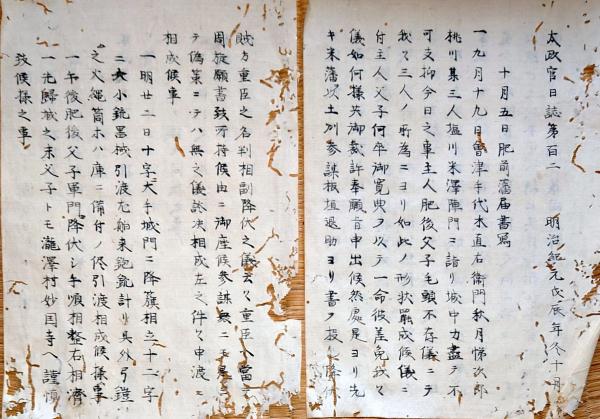 太政官日誌第百二　明治紀元戊辰年冬十月
十月五日肥前藩届書写
一九月十九日会津手代木直右衛門秋月悌次郎
桃川某三人塩川米澤陣門ニ詣り城中力盡テ不
可支抑今日之事主人肥後父子毛頭不存儀ニテ
我々三人ノ所為ニヨリ如此ノ形状ニ相成候儀ニ
付主人父子何卒御寛典ヲ以テ一命彼差免我々
儀如何様共御裁許奉願旨申出候然處是ヨリ先
キ米藩以土州参謀板垣退助ヨリ書ヲ投シ降伏
賊方重臣之名判相副降伏之儀云々重臣ヘ當テ
周旋願書致所持候由ニ御座候参謀
ニテハ無之儀談決相成左之件々申渡ニ
相成候事
一明廿二日十字大手城門ニ降旗相立十二字
ニ大小銃器城引渡尤舶来砲銃計り其外弓鎗
之火縄筒等ハ庫ニ備付ノ侭引渡相成候様事
一午後肥後父子軍門降伏シ手順相整右相濟
一先歸城之末父子トモ瀧澤村妙国寺ヘ謹慎
致候様之事